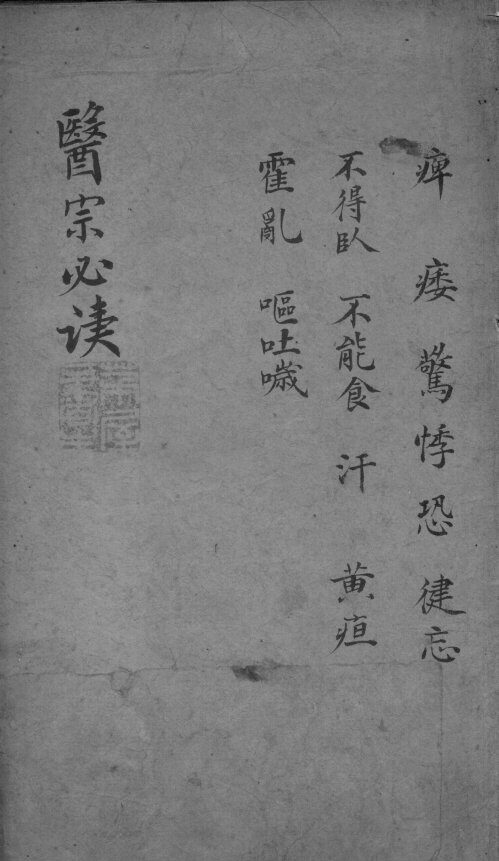 痺 痿 驚悸恐 健忘
不得臥 不能食 汗 黄疸
霍亂 嘔吐噦
醫宗必读